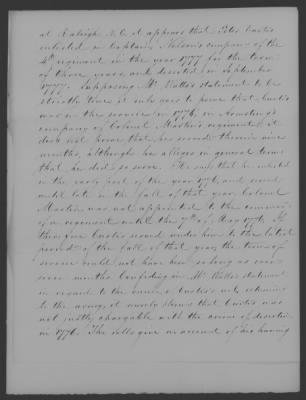 at Raleigh N.C. it appears that Peter Curtis
enlisted in Captain Nelson's company of the
4th regiment in the year 1777 for the term
of three years and deserted in September
1777. Supposing Mr Watts's statement to be
strictly true it only goes to prove that Curtis
was in the service in 1776, in Armstrong's
company of Colonel Martin's regiment, it
does not prove that he served therein nine
months, although he alleges in general terms
that he did so serve. He says that he enlisted
in the early part of the year 1776, and served
until late in the fall of that year. Colonel
Martin was not appointed to the command
of a regiment until the 7th of May 1776. If
therefore Curtis served under him to the latest
period of the fall of that year, the term of
service could not have been so long as nine
months. Confiding in Mr Watts statement
in regard to the cause of Curtis's not returning
to the army, it merely shows that Curtis was
not justly chargeable with the crime of desertion
in 1776. The rolls give no account of his having